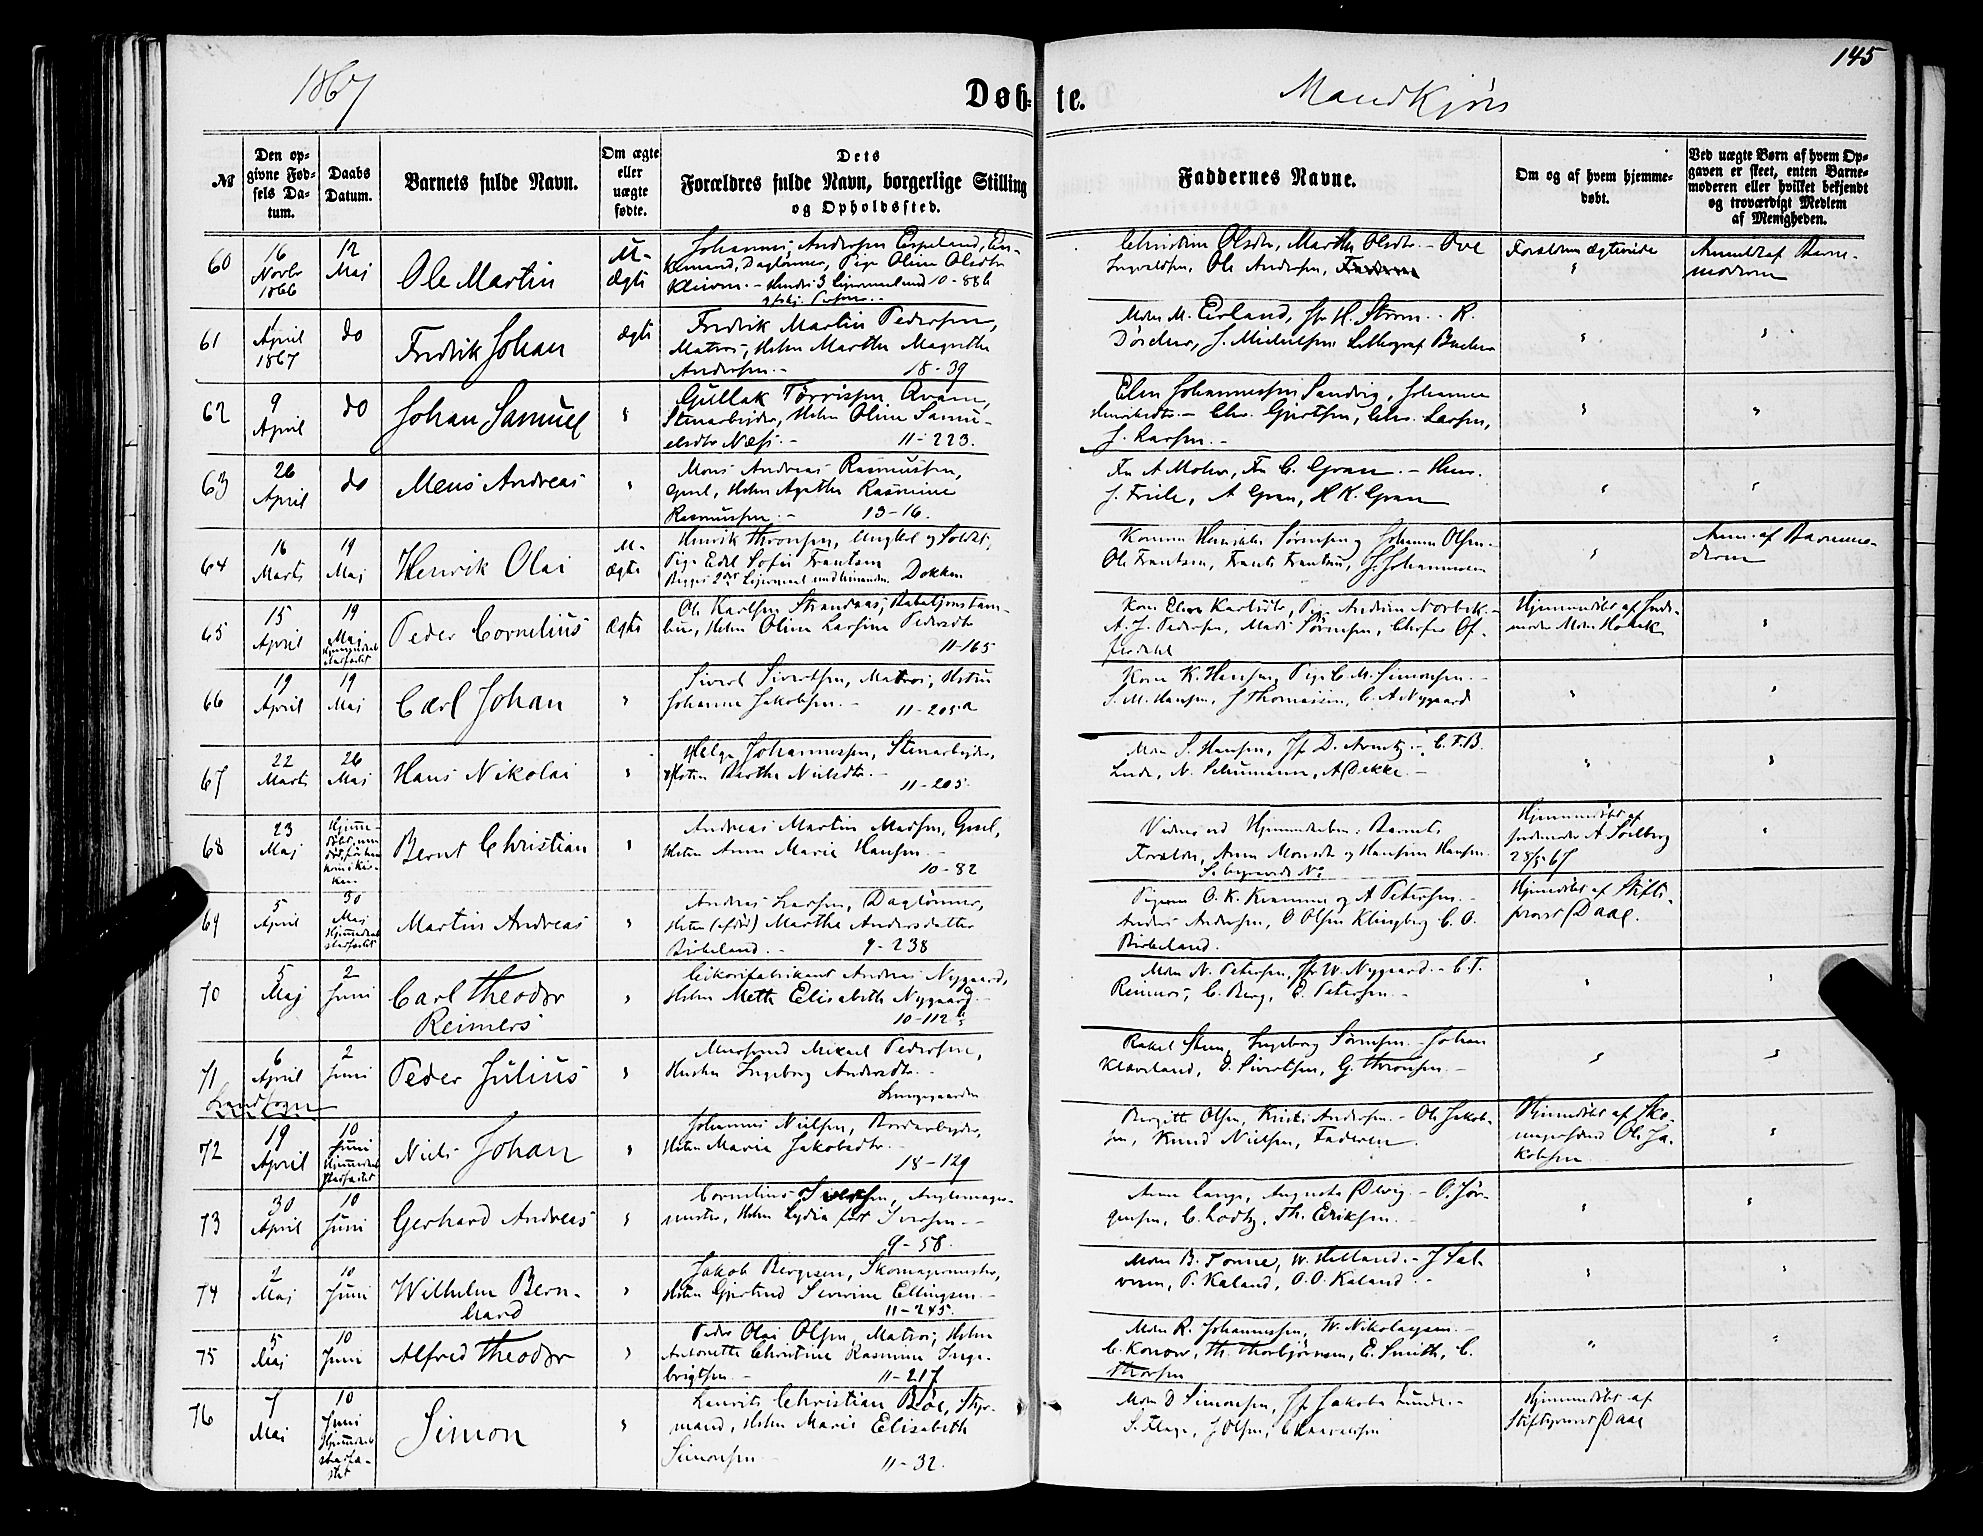 145
1867
Døb- te.
Mandkjøn
№
Den op-
givne Fød-
sels Da-
tum.
Daabs
Datum.
Barnets fulde Navn.
Om ægte
eller
uægte
fødte.
Dets
Forældres fulde Navn, borgerlige Stilling
og Opholdssted.
Faddernes Navne.
Om og af hvem hjemme-
døbt.
Ved uægte Børn af hvem Op-
gaven er skeet, enten Barne-
moderen eller hvilket bekjendt
og troværdigt Medlem
af Menigheden.
60
16
Novbr
1866
12
Maj
Ole Martin
U-
ægte
Johannes Andersen Espeland, En-
kemand, Daglønner, Pige Oline Olsdtr
10-886
Christine Olsdtr, Martha Olsdtr - Ole
Ingvaldsen, Ole Andersen, Faderen
Forældrene ægteviede
Anmeldt af Barne-
moderen
61
1
April
1867
do
Fredrik Johan
ægte
Fredrik Martin Pedersen,
Matros, Hstru Martha Magrethe
Andersen.-
18-39
Mdm M. Eerland, Jfr H. Strøm - R.
J. Michelsen Lithograf
62
9
April
do
Johan Samuel
Gullak Tørrissen Qvam,
Stenarbejder, Hstru Oline Samu-
elsdtr Næss.-
11-223.
Elen Johannessen Sandvig, Johanna
Chr. Gjertsen, Chr. Larsen,
J. Larsen.-
63
26
April
do
Mons Andreas
Mons Andreas Rasmussen,
Gsel, Hstru Agathe Rasmine
Rasmussen.-
13-16.
Fru A Mohr, Fru C. Gran.- Herr.
J. Friele, A Gran, H K. Gran
64
16
Marts
19
Maj
Henrik Olai
U-
ægte
Henrik Thronsen, Ungkl og Soldat,
Pige Edel Sofie Frantsen
Begges 2det Lejermaal med hinanden. Dokken
Johanna Olsen-
Ole Frantsen, Frants Frantsen, J. Johannesen
Anm. af Barnemo-
deren
65
15
April
19
Maj
Peder Cornelius
Ægte
Ole Karlsen Strandnæs,
Hstru Oline Larsine Pedersdtr
11-165
Kone Elen Karlsdtr, Pige Andrine Norbek.-
A. J. Pedersen, Mads Sørensen,
Hjemmedøbt af Jorde-
moder Mdm Hauck
66
19
April
19
Maj
Carl Johan
Sivert Sivertsen, Matros, Hstru
Johanne Jakobsen.-
11-205a
Kone K. Hansen, Pige C. M. Simonsen.-
S. M. Hansen, J Thomassen, C. A Nygaard
67
22
Marts
26
Maj
Hans Nikolai
Helge Johannessen, Stenarbejder,
Hstru Bertha Nielsdtr.-
11-205.
Mdm S. Hansen, Jfr D. Arentz.- C. T. B.
Lude, N. Schumann, A Dekke.-
68
23
Maj
Hjemme-
døbt, men
død før
Bernt Christian
Andreas Martin Madsen, Gsel,
Hstru Anna Marie Hansen.-
10-82
Vidner ved Hjemmedaaben: Barnets
Forældre, Anna Monsdtr og Hansine Hansen.
Hjemmedøbt af
Jordemoder A Solberg
23/5 67
69
5
April
30
Maj
Hjemmedaab
stadfæstet
Martin Andreas
Andreas Larsen, Daglønner,
Hstru Martha Andersdatter
Birkeland.-
9-238
Pigerne O. K. Kvamme og A Petersen.-
Anders Andersen, O Olsen Klingberg C. O.
Birkeland.
Hjemmedøbt af Stifts-
provst Daae.
70
5
Maj
2
Juni
Carl Theodor
Reimers
Cikorifabrikant Andreas Nygaard,
Hstru Mette Elisabeth Nygaard.-
10-112b
Mdm N. Petersen, Jfr W. Nygaard.- C. T.
Reimers, C. Berg, E. Petersen.-
71
6
April
2
Juni
Peder Julius
Murersvend Mikael Pedersen,
Hustru Ingeborg Andersdtr.-
Lungegaarden
Rakel Steen, Ingeborg Sørensen.- Johan
Klaveland, O. Sivertsen, G. Thronsen.-
Landsogn
72
19
April
10
Juni
Hjemmedaab
stadfæstet
Niels Johan
Johannes Nielsen, Bordarbejder,
Hstru Maria Jakobsdtr.-
18-129
Bergitte Olsen, Kristi Andersen.- Ole Jakob-
sen, Knud Nielsen, Faderen
Hjemmedøbt af Sko-
magersvend Ole Ja-
kobsen
73
30
April
10
Juni
Gerhard Andreas
Cornelius Iversen,
Hstru Lydia født Iversen.-
9-58.
Anna Lange, Augusta Olvig.- O. Jør-
gensen, C. Lodtz, Th. Eriksen.
74
2
Maj
10
Juni
Wilhelm Bern-
hard
Jakob Bergesen, Skomagermester,
Hstru Gjertrud Severine Ellingsen.-
11-245.
Mdm B. Tonne, W. Helland.- J Sal-
vesen, P. Kaland, O. O. Kaland.-
75
5
Maj
10
Juni
Alfred Theodor
Peder Olai Olsen, Matros, Hstru
Antonette Christine Rasmine Inge-
brigtsen.-
11-217
Mdm R. Johannessen, W. Nikolaysen.-
C. Konow, Th. Thorbjørnsen, E. Smith, C.
Thorsen
76
7
Maj
10
Juni
Hjemmedaab
stadfæ-
stet
Simon
Laurits Christian Bøe, Styr-
mand, Hstru Marie Elisabeth
Simonsen.-
11-32.
Mdm D Simonsen, Jfr Jakoba Lunde.-
S. Flage, J Olsen,
Hjemmedøbt af
Stiftsprovst Daae